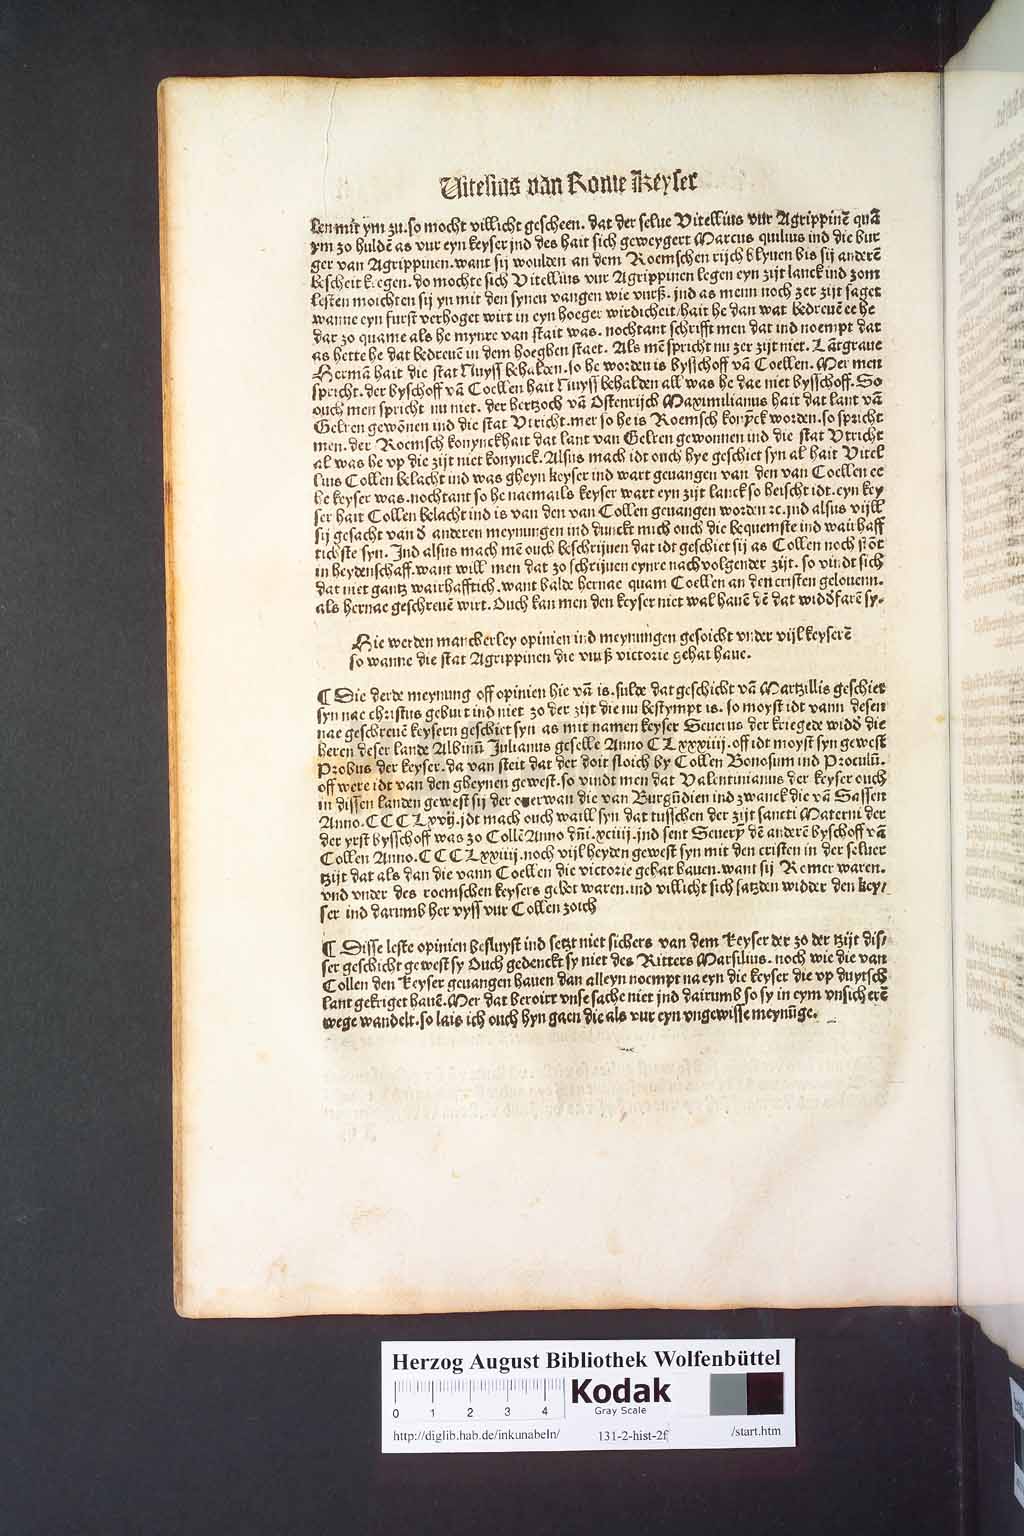 Vitellius van Rome Keyser
len mit ym zu. so mocht villicht gescheen. dat der selue Vitellius vur Agrippinē quā
ym zo huldē as vur eyn keyser jnd des hait sich geweygert Marcus quilius ind die bur
ger van Agrippinen. want sij woulden an dem Roemschen rijch blyuen bis sij anderē
bescheit kregen. do mochte sich Vitellius vur Agrippinen legen eyn zijt lanck ind zom
lesten moichten sij yn mit den synen vangen wie vurß. jnd as menn noch zer zijt saget
wanne eyn furst verhoget wirt in eyn hoeger wirdicheit/hait he dan wat bedreuē ee he
dar zo quame als he mynre van stait was. nochtant schrifft men dat ind noempt dat
as hette he dat bedreuē in dem hoeghen staet. Als mē spricht nu zer zijt niet. Lātgraue
Hermā hait die stat Nuyss behalden. so he worden is bysschoff vā Coellen. Mer men
spricht. der byschoff vā Coellen hait Nuyss behalden all was he dae niet bysschoff. So
ouch men spricht nu niet. der hertzoch vā Ostenrijch Maximilianus hait dat lant vā
Gelren gewōnen ind die stat Vtricht. mer so he is Roemsch konyck worden. so spricht
men. der Roemsch konynck hait dat lant van Gelren gewonnen ind die stat Vtricht
al was he vp die zijt niet konynck. Alsus mach idt ouch hye geschiet syn al hait Vitel
lius Collen belacht ind was gheyn keyser ind wart geuangen van den van Coellen ee
he keyser was. nochtant so he naemails keyser wart eyn zijt lanck so heischt idt. eyn key
ser hait Collen belacht ind is van den van Collen geuangen worden ⁊c. jnd alsus vijll
sij gesacht van d' anderen meynungen ind dunckt mich ouch die bequemste ind wairhaff
tichste syn. Ind alsus mach mē ouch beschrijuen dat idt geschiet sij as Collen noch stōt
in heydenschaff. want will men dat zo schrijuen eynre nachvolgender zijt. so vindt sich
dat niet gantz wairhafftich. want balde hernae quam Coellen an den cristen gelouenn.
als hernae geschreuē wirt. Ouch kan men den keyser niet wal hauē dē dat widd'farē sy.
Hie werden mancherley opinien ind meynungen gesoicht vnder vijl keyserē
so wanne die stat Agrippinen die vurß victorie gehat haue.
¶ Die derde meynung off opinien hie vā is. sulde dat geschicht vā Martzillis geschiet
syn nae christus geburt ind niet zo der zijt die nu bestympt is. so moyst idt vann desen
nae geschreuē keysern geschiet syn as mit namen keyser Seuerus der kriegede widd' die
heren deser lande Albinū Julianus geselle Anno CLxxxiiij. off idt moyst syn gewest
Probus der keyser. da van steit dat der doit sloich by Collen Bonosum ind Proculū.
off were idt van den gheynen gewest. so vindt men dat Valentinianus der keyser ouch
in dissen landen gewest sij der ouerwan die van Burgūdien ind zwanck die vā Sassen
Anno. CCCLxvij. jdt mach ouch waill syn dat tusschen der zijt sancti Materni der
der yrst bysschoff was zo Collē Anno dñi. xciiij. jnd sent Seuery dē anderē byschoff vā
Collen Anno. CCCLxxiiij. noch vijl heyden gewest syn mit den cristen in der seluer
tzijt dat als dan die vann Coellen die victorie gehat hauen. want sij Remer waren.
vnd vnder des roemschen keysers gebot waren. ind villicht sich satzden widder den key/
ser ind darumb her vyss vur Collen zoich
¶ Disse leste opinien besluyst ind setzt niet sichers van dem keyser der zo der tzijt dis/
ser geschicht gewest sy Ouch gedenckt sy niet des Ritters Marsilius. noch wie die van
Collen den keyser geuangen hauen dan alleyn noempt na eyn die keyser die vp duytsch
lant gekriget hauē. Mer dat beroirt vnse sache niet jnd dairumb so sy in eym vnsicherē
wege wandelt. so lais ich ouch hyn gaen die als vur eyn vngewisse meynūge.
Herzog August Bibliothek Wolfenbüttel
0 1 2 3 4
Kodak
Gray Scale
http://diglib.hab.de/inkunabeln/ 131-2-hist-2f /start.htm